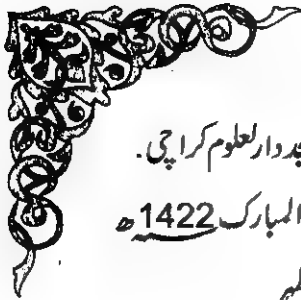 دارلعلوم کراچی.
المبارک 1422ھ